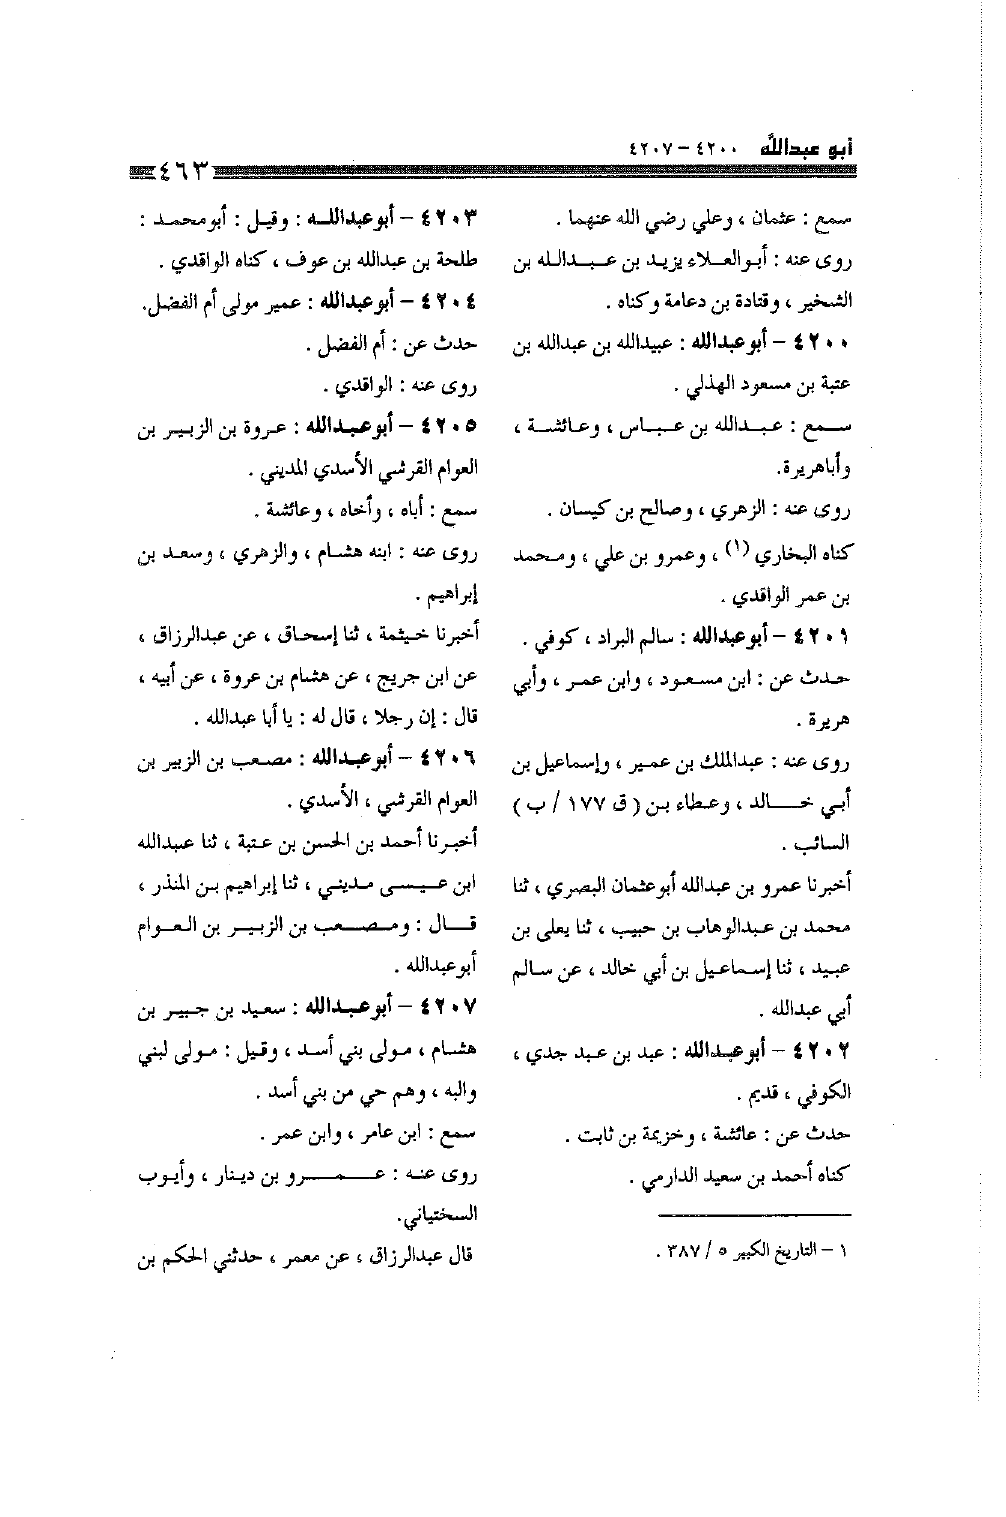 أبو عبدالله ٤٢٠٠ - ٤٢٠٧
٤٦٣
سمع : عثمان ، وعلي رضي الله عنهما .
روى عنه : أبوالعلاء يزيد بن عبدالله بن
الشخير ، وقتادة بن دعامة وكناه .
٤٢٠٠ - أبوعبدالله : عبيدالله بن عبدالله بن
عتبة بن مسعود الهذلي .
سمع : عبدالله بن عباس ، وعائشة ،
وأباهريرة.
روى عنه : الزهري ، وصالح بن كيسان .
كناه البخاري (١) ، وعمرو بن علي ، ومحمد
بن عمر الواقدي .
٤٢٠١ - أبوعبدالله : سالم البراد ، كوفي .
حدث عن : ابن مسعود ، وابن عمر ، وأبي
هريرة .
روى عنه : عبدالملك بن عمير ، وإسماعيل بن
أبي خالد ، وعطاء بن ( ق ١٧٧ / ب )
السائب .
أخبرنا عمرو بن عبدالله أبوعثمان البصري ، ثنا
محمد بن عبدالوهاب بن حبيب ، ثنا يعلى بن
عبيد ، ثنا إسماعيل بن أبي خالد ، عن سالم
أبي عبدالله .
٤٢٠٢ - أبوعبدالله : عبد بن عبد جدي ،
الكوفي ، قديم .
حدث عن : عائشة ، وخزيمة بن ثابت .
كناه أحمد بن سعيد الدارمي .
١ - التاريخ الكبير ٥ / ٣٨٧ .
٤٢٠٣ - أبوعبدالله : وقيل : أبومحمد :
طلحة بن عبدالله بن عوف ، كناه الواقدي .
٤٢٠٤ - أبوعبدالله : عمير مولى أم الفضل.
حدث عن : أم الفضل .
روى عنه : الواقدي .
٤٢٠٥ - أبوعبدالله : عروة بن الزبير بن
العوام القرشي الأسدي المديني .
سمع : أباه ، وأخاه ، وعائشة .
روى عنه : ابنه هشام ، والزهري ، وسعد بن
إبراهيم .
أخبرنا خيثمة ، ثنا إسحاق ، عن عبدالرزاق ،
عن ابن جريج ، عن هشام بن عروة ، عن أبيه ،
قال : إن رجلا ، قال له : يا أبا عبدالله .
٤٢٠٦ - أبوعبدالله : مصعب بن الزبير بن
العوام القرشي ، الأسدي .
أخبرنا أحمد بن الحسن بن عتبة ، ثنا عبدالله
ابن عيسى مديني ، ثنا إبراهيم بن المنذر ،
قال : ومصعب بن الزبير بن العوام
أبوعبدالله .
٤٢٠٧ - أبوعبدالله : سعيد بن جبير بن
هشام ، مولى بني أسد ، وقيل : مولى لبني
والبه ، وهم حي من بني أسد .
سمع : ابن عامر ، وابن عمر .
روى عنه : عمرو بن دينار ، وأيوب
السختياني.
قال عبدالرزاق ، عن معمر ، حدثني الحكم بن